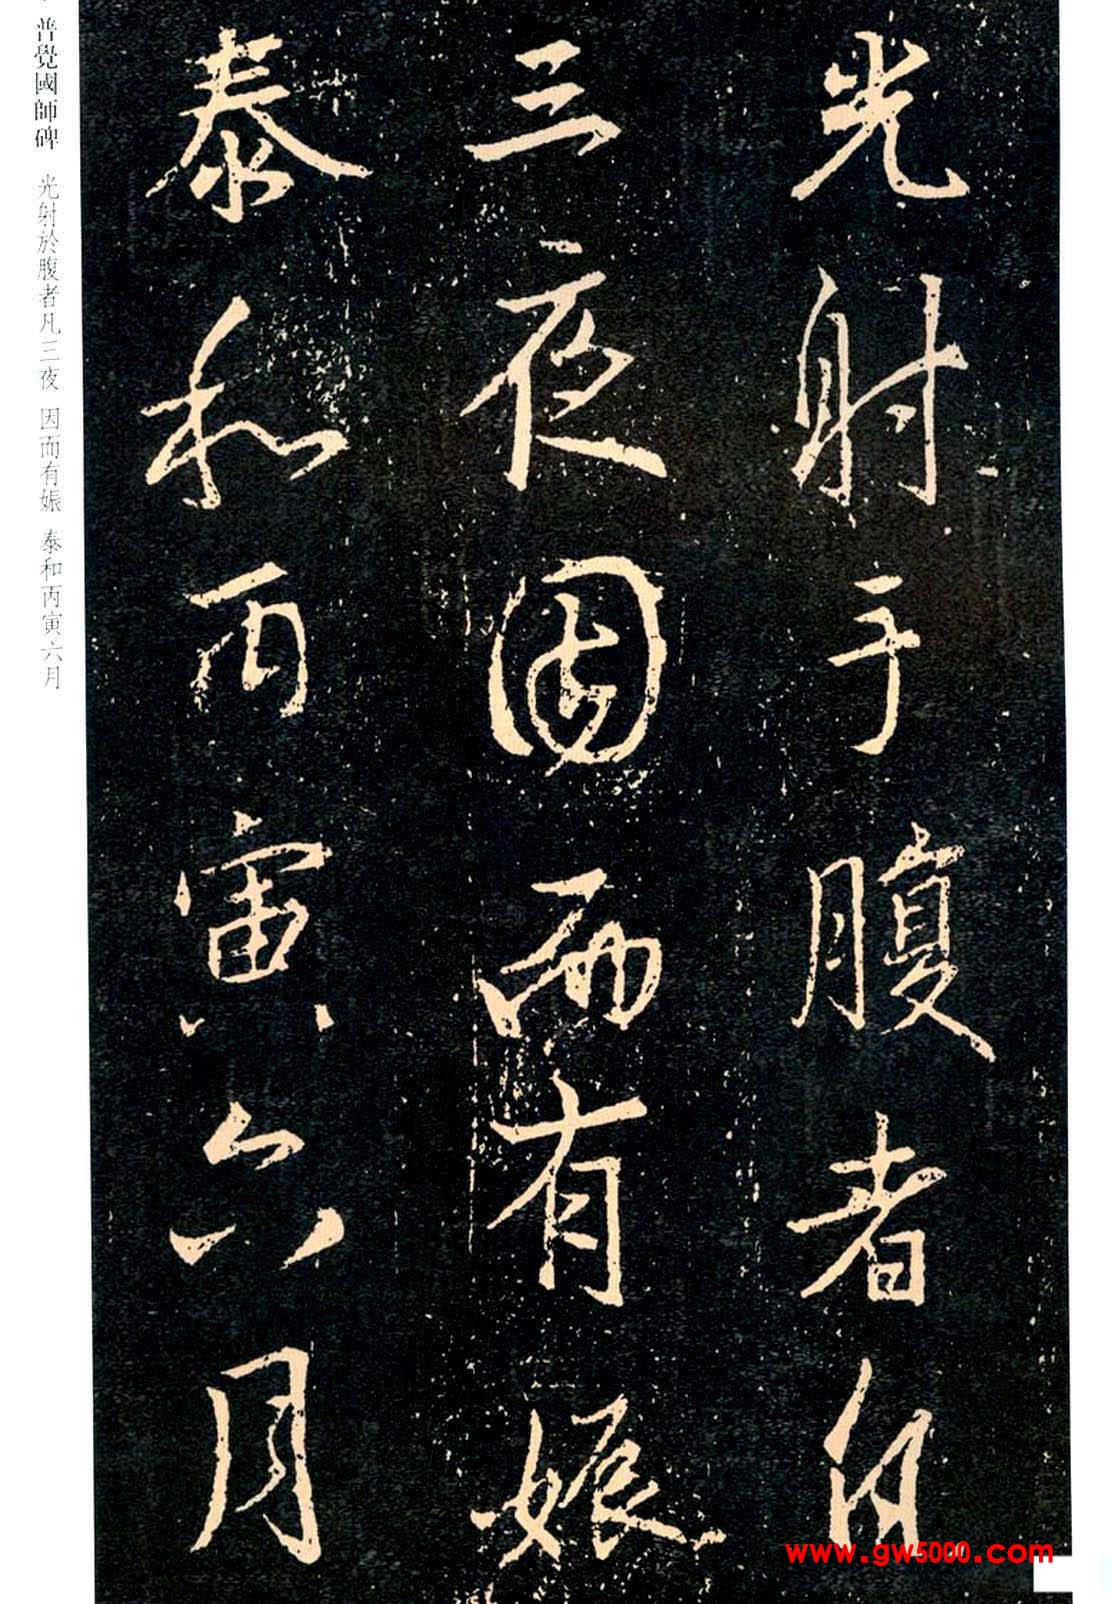 光射于腹者凡
三夜因而有娠
泰和丙寅六月
普覺國師碑 光射於腹者凡三夜 因而有娠 泰和丙寅六月
www.gw5000.com